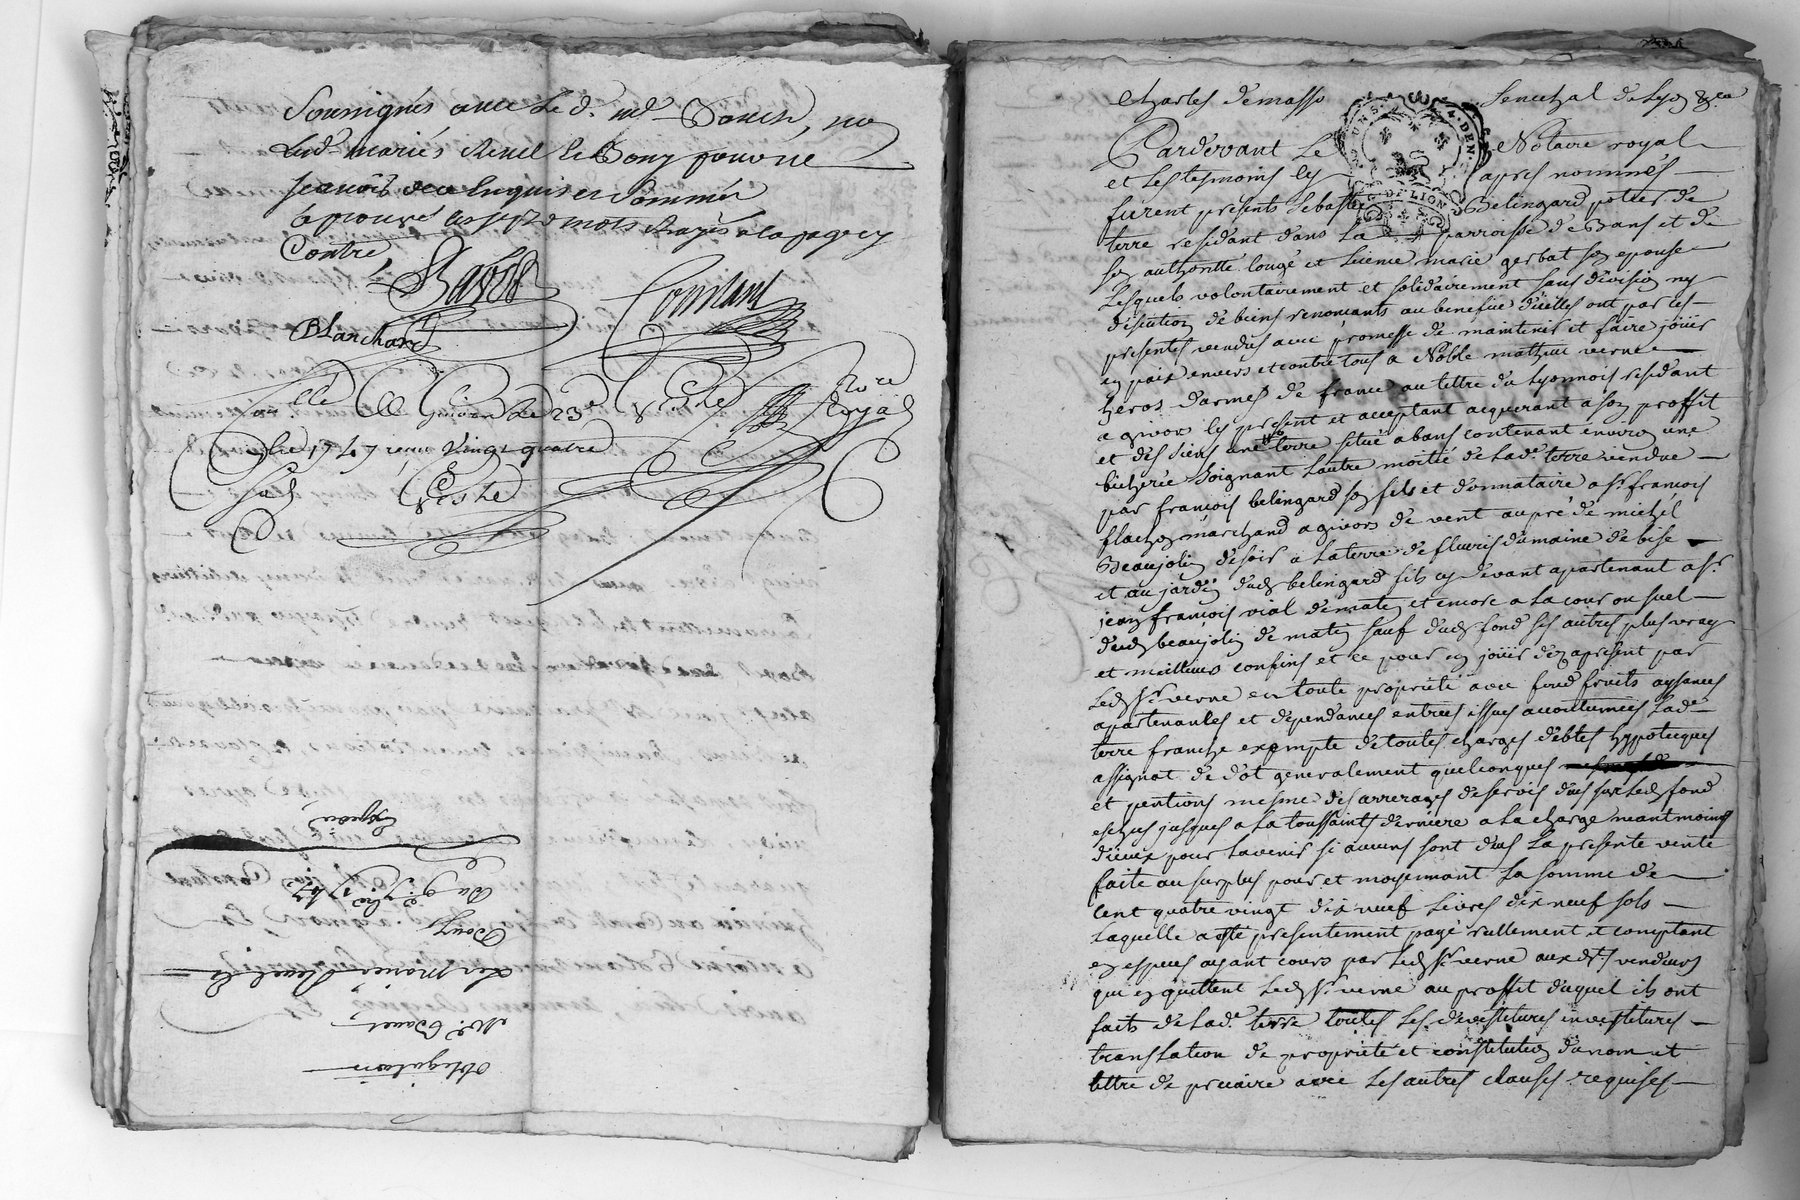 Soussignés avec led. sr Bauch, non
Lesd. mariés Revel le Bouz pour ne
scavoir de ce Enquis et Sommés
approuvé les sept mots Rayés a la page cy
Contre,
Constant
Blanchard
Con.lle a Givors le 23e
xbre 1747 reçu Vingt quatre
sols
Nore
Royal
Obligation
Sr. Bauch
Les mariés Revel le
Bouz
Du 9 xbre 1747
Expediée
Charles demasso Senechal de Lyon &ca
Pardevant Le Notaire royal
et Les tesmoins cy apres nommés
furent presents Sebastien Belingard potier de
terre residant dans La parroisse de Bans et de
son authorité Lougé et Licence marie gerbat son epouse
Lesquels volontairement et solidairement sans division ny
discution de biens renonçants au benefice d'icelles ont par ces
presentes vendus avec promesse de maintenir et faire jouir
en paix envers et contre tous a Noble mathieu verne
heros d'armes de france au tittre du Lyonnois residant
a givors icy present et acceptant acquerant a son proffit
et des siens une terre situé a bans contenant environ une
bicherée Joignant Lautre moitié de Lade. terre vendue
par françois belingard son fils et donnataire a sr. françois
flachon marchand a givors de vent au pré de michel
Beaujolin de soir a La terre de fleuris du maine de bise
et au jardin dud. belingard fils cy devant apartenant a sr.
jean françois vial de matin et encore a La cour ou suel
dud. beaujolin de matin sauf dud. fond ses autres plus vray
et meilleurs confins et ce pour en jouir dez apresent par
Led. sr. verne en toute propriété avec fond fruits aysances
apartenances et dependances entrées issues accoutumées Lade.
terre franche exempte de toutes charges debtes hypotecques
assignat de dot generalement quelconques
et pentions mesme des arrerages de servis dus sur Led. fond
echus jusques a La toussaints derniere a La charge neantmoins
d'iceux pour Lavenir si aucuns sont dus La presente vente
faite au surplus pour et moyennant La somme de
Cent quatre vingt dix neuf Livres dix neuf sols
Laquelle a esté presentement payé reellement et comptant
en especes ayant cours par Led. sr. verne auxdts. vendeurs
qui en quittent Led. sr. verne au proffit duquel ils ont
faits de Lade. terre toutes Les devestitures investitures
translation de propriété et constitution d'a nom et
tittre de precaire avec Les autres clauses requises